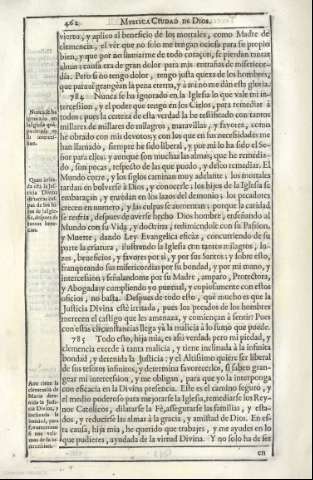 462 MYSTICA CIUDAD DE DIOS.
vierto, y aplico al beneficio de los mortales, como Madre de
clemencia, el ver que no solo me tengan ociosa para su propio
bien, y que por no llamarme de todo coraçon, se pierdan tantas
almas; causa era de gran dolor para mis entrañas de misericor-
dia. Pero si no tengo dolor, tengo justa quexa de los hombres,
que para sì grangéan la pena eterna, y à mi no me dàn esta gloria.
784 Nunca se ha ignorado en la Iglesia lo que vale mi in-
tercession, y el poder que tengo en los Cielos, para remediar à
todos: pues la certeza de esta verdad la he testificado con tantos
millares de millares de milagros, maravillas, y favores, como
hé obrado con mis devotos; y con los que en sus necesidades me
han llamado, siempre he sido liberal, y por mi lo ha sido el Se-
ñor para ellos: y aunque son muchas las almas, que he remedia-
do, son pocas, respecto de las que puedo, y deseo remediar. El
Mundo corre, y los siglos caminan muy adelante; los mortales
tardan en bolverse à Dios, y conocerle; los hijos de la Iglesia se
embaraçan, y enredan en los lazos del demonio; los pecadores
crecen en numero, y las culpas se aumentan; porque la caridad
se resfria, despues de averse hecho Dios hombre, enseñando al
Mundo con su Vida, y doctrina; redimiendole con su Passion,
y Muerte; dando Ley Evangelica eficàz, concurriendo de su
parte la criatura, ilustrando la Iglesia con tantos milagros, lu-
zes, beneficios, y favores por sì, y por sus Santos: y sobre esto,
franqueando sus misericordias por su bondad, y por mi mano, y
intercession; y señalandome por su Madre, amparo, Protectora,
y Abogada; y cumpliendo yo puntual, y copiosamente con estos
oficios, no basta. Despues de todo esto, què mucho es que la
Justicia Divina estè irritada, pues los pecados de los hombres
merecen el castigo que les amenaza, y comiençan à sentir? Pues
con estas circunstancias llega yà la malicia à lo sumo que puede.
785 Todo esto, hija mia, es assi verdad; pero mi piedad, y
clemencia excede à tanta malicia, y tiene inclinada à la infinita
bondad, y detenida la Justicia: y el Altissimo quiere ser liberal
de sus tesoros infinitos, y determina favorecerlos, si saben gran-
gear mi intercession, y me obligan, para que yo la interponga
con eficacia en la Divina presencia. Este es el camino seguro, y
el medio poderoso para mejorarse la Iglesia, remediarse los Rey-
nos Catolicos, dilatarse la Fè, assegurarse las familias, y esta-
dos, y reducirse las almas à la gracia, y amistad de Dios. En es-
ta causa, hija mia, he querido que trabajes, y me ayudes en lo
que pudieres, ayudada de la virtud Divina. Y no solo ha de ser
en